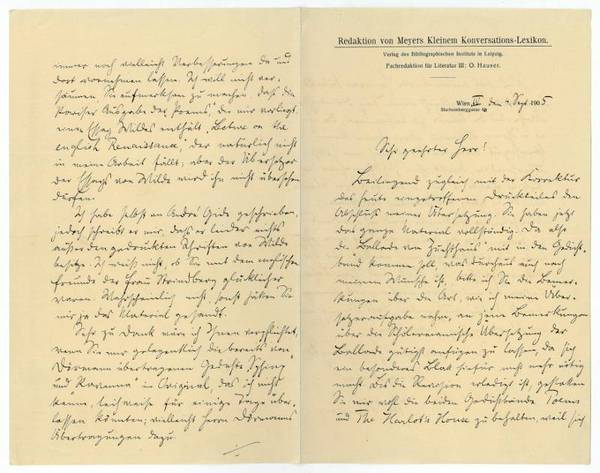 Redaktion von Meyers Kleinem Konversations-Lexikon.
Verlag des Bibliographischen Instituts in Leipzig.
Fachredaktion für Literatur III: O. Hauser.
Wien, den 4. Sept. 1905
Sehr geehrter Herr!
Beiliegend zugleich mit der Korrektur
des heute eingetroffenen Druckteiles den
Abschluß meiner Übersetzung. Sie haben jetzt
das ganze Material vollständig. Da also
die Ballade vom Zuchthaus mit in den Gedicht-
band kommen soll, was durchaus auch nach
meinem Wunsche ist, bitte ich Sie die Bemer-
kungen über die Art, wie ich meine Über-
setzeraufgabe nahm, an jene Bemerkungen
über die Schölermannsche Übersetzung der
Ballade gütigst anfügen zu lassen, da sich
ein besonderes Blatt hiefür nicht mehr nötig
macht. Bis die Revision erledigt ist, gestatten
Sie mir wohl die beiden Gedichtbände Poems
und The Harlot's House zu behalten, weil sich
immer noch vielleicht Verbesserungen da und
dort vornehmen lassen. Ich will nicht ver-
säumen Sie aufmerksam zu machen, daß die
Pariser Ausgabe der Poems, die mir vorliegt,
einen Essay Wildes enthält, Lecture on the
english Renaissance, der natürlich nicht
in meine Arbeit fällt; aber der Übersetzer
der Essays von Wilde wird ihn nicht übersehen
dürfen.
Ich habe selbst an André Gide geschrieben,
jedoch schreibt er mir, daß er leider nichts
außer den gedruckten Schriften von Wilde
besitze. Ich weiß nicht, ob Sie mit dem
Freunde der Frau Strindberg glücklicher
waren. Wahrscheinlich nicht, sonst hätten Sie
mir ja das Material gesandt.
Sehr zu Dank wäre ich Ihnen verpflichtet,
wenn Sie mir gelegentlich die bereits von
Dörmann übertragenen Gedichte Sphinx
und Ravenna in Original, das ich nicht
kenne, leihweise für einige Tage über-
lassen könnten; vielleicht Herrn Dörmanns
Übertragungen dazu.